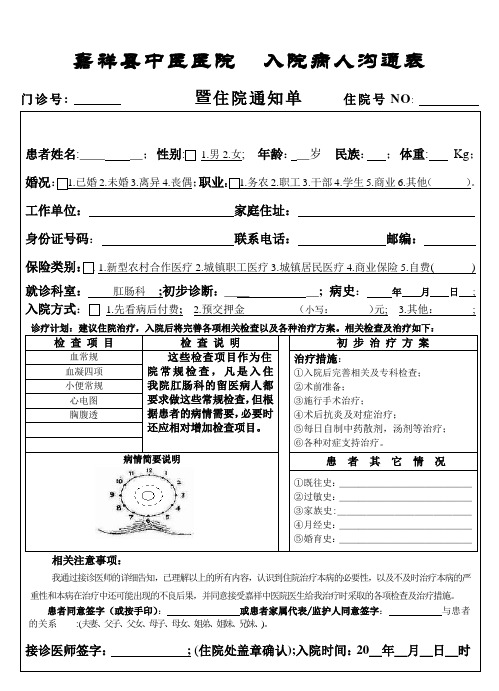 嘉祥县中医医院 入院病人沟通表
门诊号: 暨住院通知单 住院号 NO:
患者姓名:____ __; 性别: 1.男 2.女; 年龄: __岁 民族: ; 体重: Kg;
婚况: 1.已婚 2.未婚 3.离异 4.丧偶; 职业: 1.务农 2.职工 3.干部 4.学生 5.商业 6.其他( )。
工作单位: 家庭住址:
身份证号码: 联系电话: 邮编:
保险类别: 1.新型农村合作医疗 2.城镇职工医疗 3.城镇居民医疗 4.商业保险 5.自费( )
就诊科室: 肛肠科 ;初步诊断: __ __; 病史: 年 月 日 ;
入院方式: 1.先看病后付费; 2.预交押金 (小写: )元; 3.其他: ;
诊疗计划: 建议住院治疗,入院后将完善各项相关检查以及各种治疗方案。相关检查及治疗如下:
检 查 项 目 检 查 说 明 初 步 治 疗 方 案
血常规
血凝四项
小便常规
心电图
胸腹透
这些检查项目作为住
院常规检查,凡是入住
我院肛肠科的留医病人都
要求做这些常规检查,但根
据患者的病情需要,必要时
还应相对增加检查项目。
治疗措施:
①入院后完善相关及专科检查;
②术前准备;
③施行手术治疗;
④术后抗炎及对症治疗;
⑤每日自制中药散剂,汤剂等治疗;
⑥各种对症支持治疗。
病情简要说明
12
11 1
10 2
9 3
8 4
7 5
6
患 者 其 它 情 况
①既往史:
②过敏史:
③家族史:
④月经史:
⑤婚育史:
相关注意事项:
我通过接诊医师的详细告知,已理解以上的所有内容,认识到住院治疗本病的必要性,以及不及时治疗本病的严
重性和本病在治疗中还可能出现的不良后果,并同意接受嘉祥中医院医生给我治疗时采取的各项检查及治疗措施。
患者同意签字(或按手印): 或患者家属代表/监护人同意签字: 与患者
的关系 :(夫妻、父子、父女、母子、母女、姐弟、姐妹、兄妹、)。
接诊医师签字: ; (住院处盖章确认);入院时间: 20__年__月__日__时